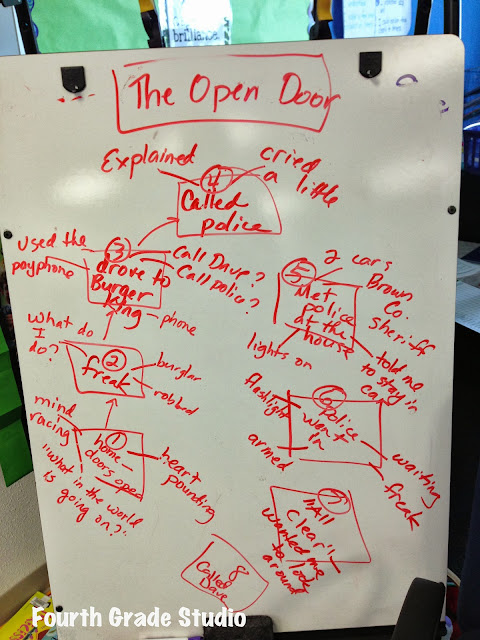 brilliance
The Open Door
Explained
cried
a little
4
Called
police
used the
payphone
3
drove to
Burger
King
call Dave?
Call police?
phone
what do
I
do?
2
freak
burglar
robbed
mind
racing
1
home-
doors open
heart
pounding
"What in the world
is going on?"
5
Met
police
at the
house
2 cars
Brown
Co.
Sheriff
lights on
told me
to stay in
car
6
police
went
in
flashlight
armed
waiting
freak
7
"All
Clear"
wanted me
to look
around
8
Called
Dave
Fourth Grade Studio